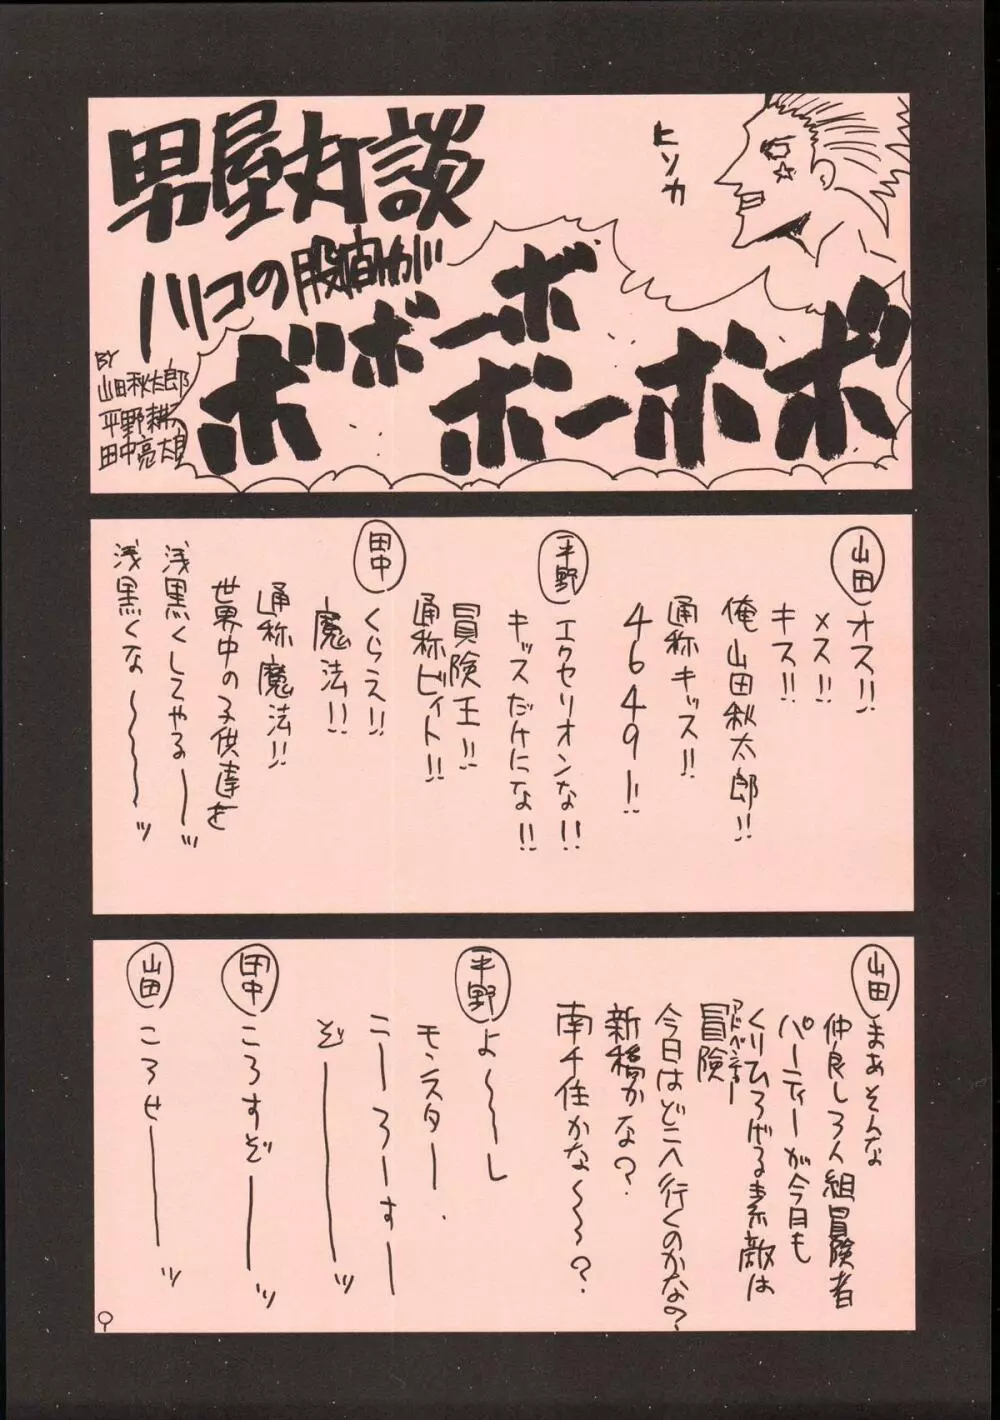 男屋対談
ハリコの股間が
ボボボーボ
ボーボボ
ヒソカ
BY
山田秋太郎
平野耕太
田中亮太郎
山田
オス!!
メス!!
キス!!
俺山田秋太郎!!
通称キッス!!
4649!!
平野
エクセリオンな!!
キッスだけにな!!
冒険王!!
通称ビィト!!
田中
くらえ!!
魔法!!
通称魔法!!
世界中の子供達を
浅黒くしてやるーッ
浅黒くな〜〜〜ッ
山田
まあそんな
仲良し3人組冒険者
パーティーが今日も
くりひろげる素敵は
冒険
アドベンチャー
今日はどこへ行くのかな?
新橋かな?
南千住かな〜〜?
平野
よ〜〜し
モンスター
こーろーすー
ぞーーッ
田中
ころすぞーーッ
山田
ころせーーッ
9